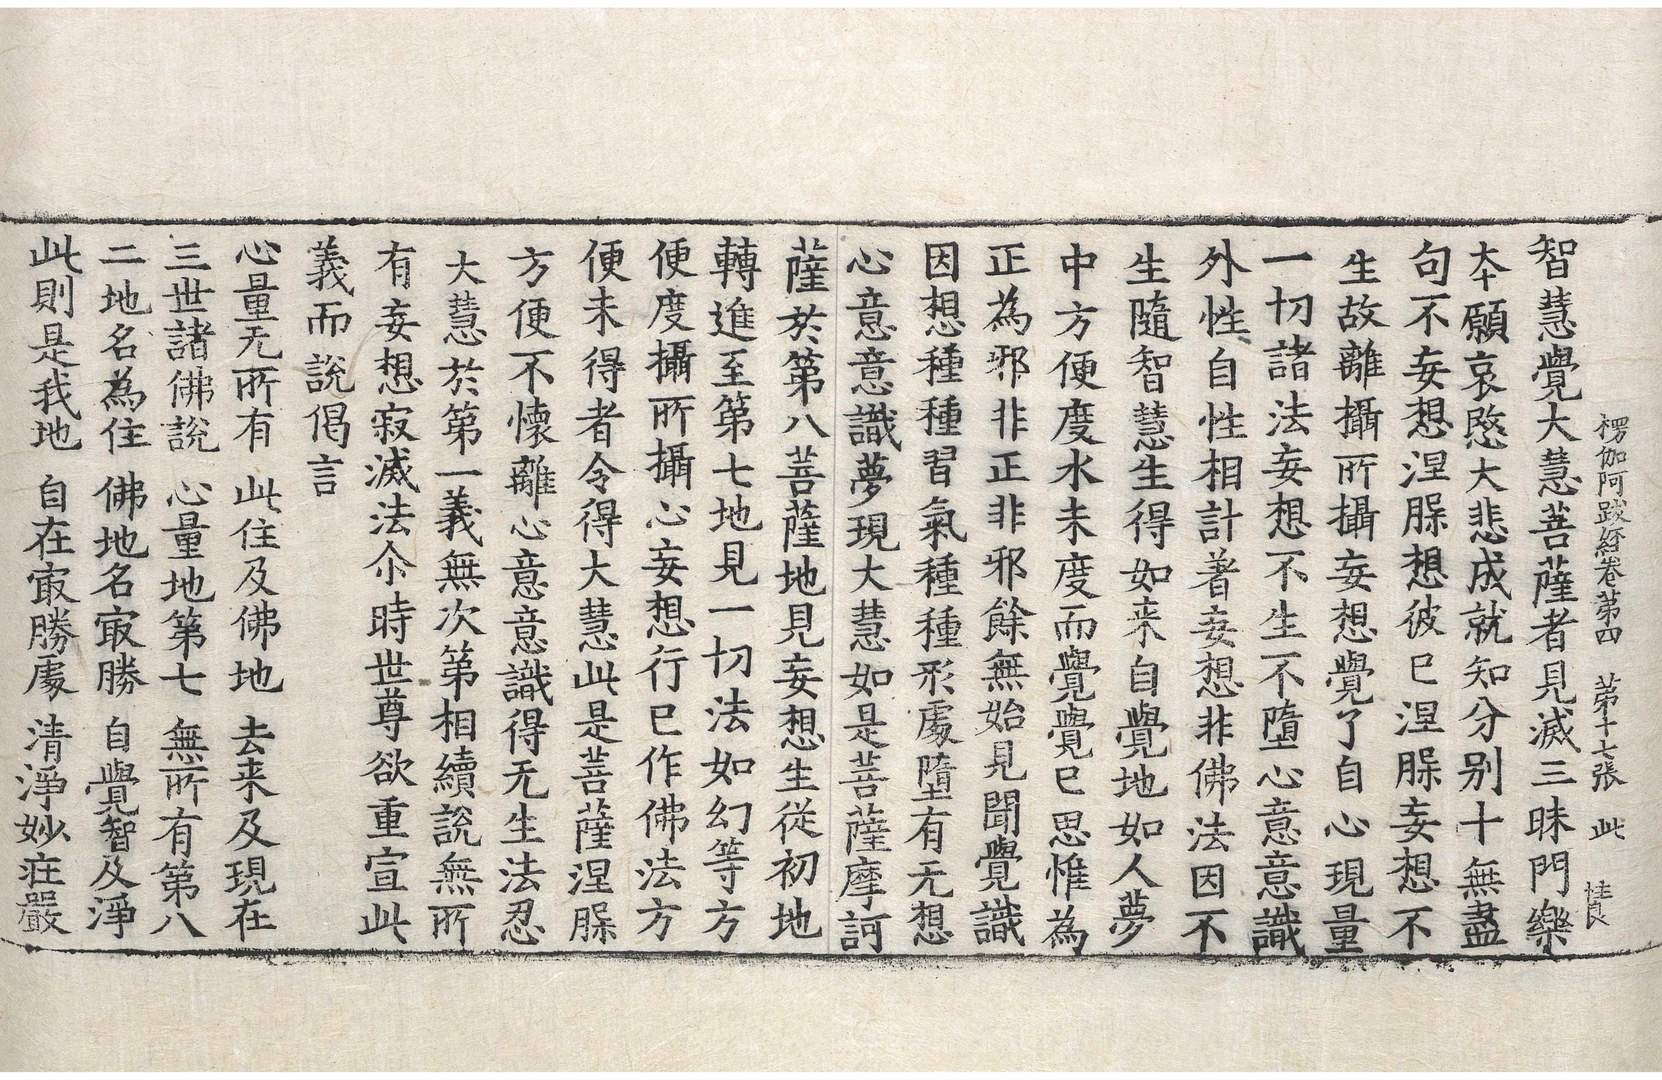 楞伽阿跋經卷第四　第十七張　此　佳良
智慧覺大慧菩薩者見滅三昧門樂
本願哀愍大悲成就知分别十無盡
句不妄想涅脲想彼已涅脲妄想不
生故離攝所攝妄想覺了自心現量
一切諸法妄想不生不墮心意意識
外性自性相計著妄想非佛法因不
生隨智慧生得如来自覺地如人夢
中方便度水未度而覺覺已思惟為
正為邪非正非邪餘無始見聞覺識
因想種種習氣種種形處墮有无想
心意意識夢現大慧如是菩薩摩訶
薩於第八菩薩地見妄想生從初地
轉進至第七地見一切法如幻等方
便度攝所攝心妄想行已作佛法方
便未得者令得大慧此是菩薩涅脲
方便不懷離心意意識得无生法忍
大慧於第一義無次第相續說無所
有妄想寂滅法尒時世尊欲重宣此
義而說偈言
心量无所有　此住及佛地　去来及現在
三世諸佛說　心量地第七　無所有第八
二地名為住　佛地名㝡勝　自覺智及淨
此則是我地　自在㝡勝處　清淨妙莊嚴